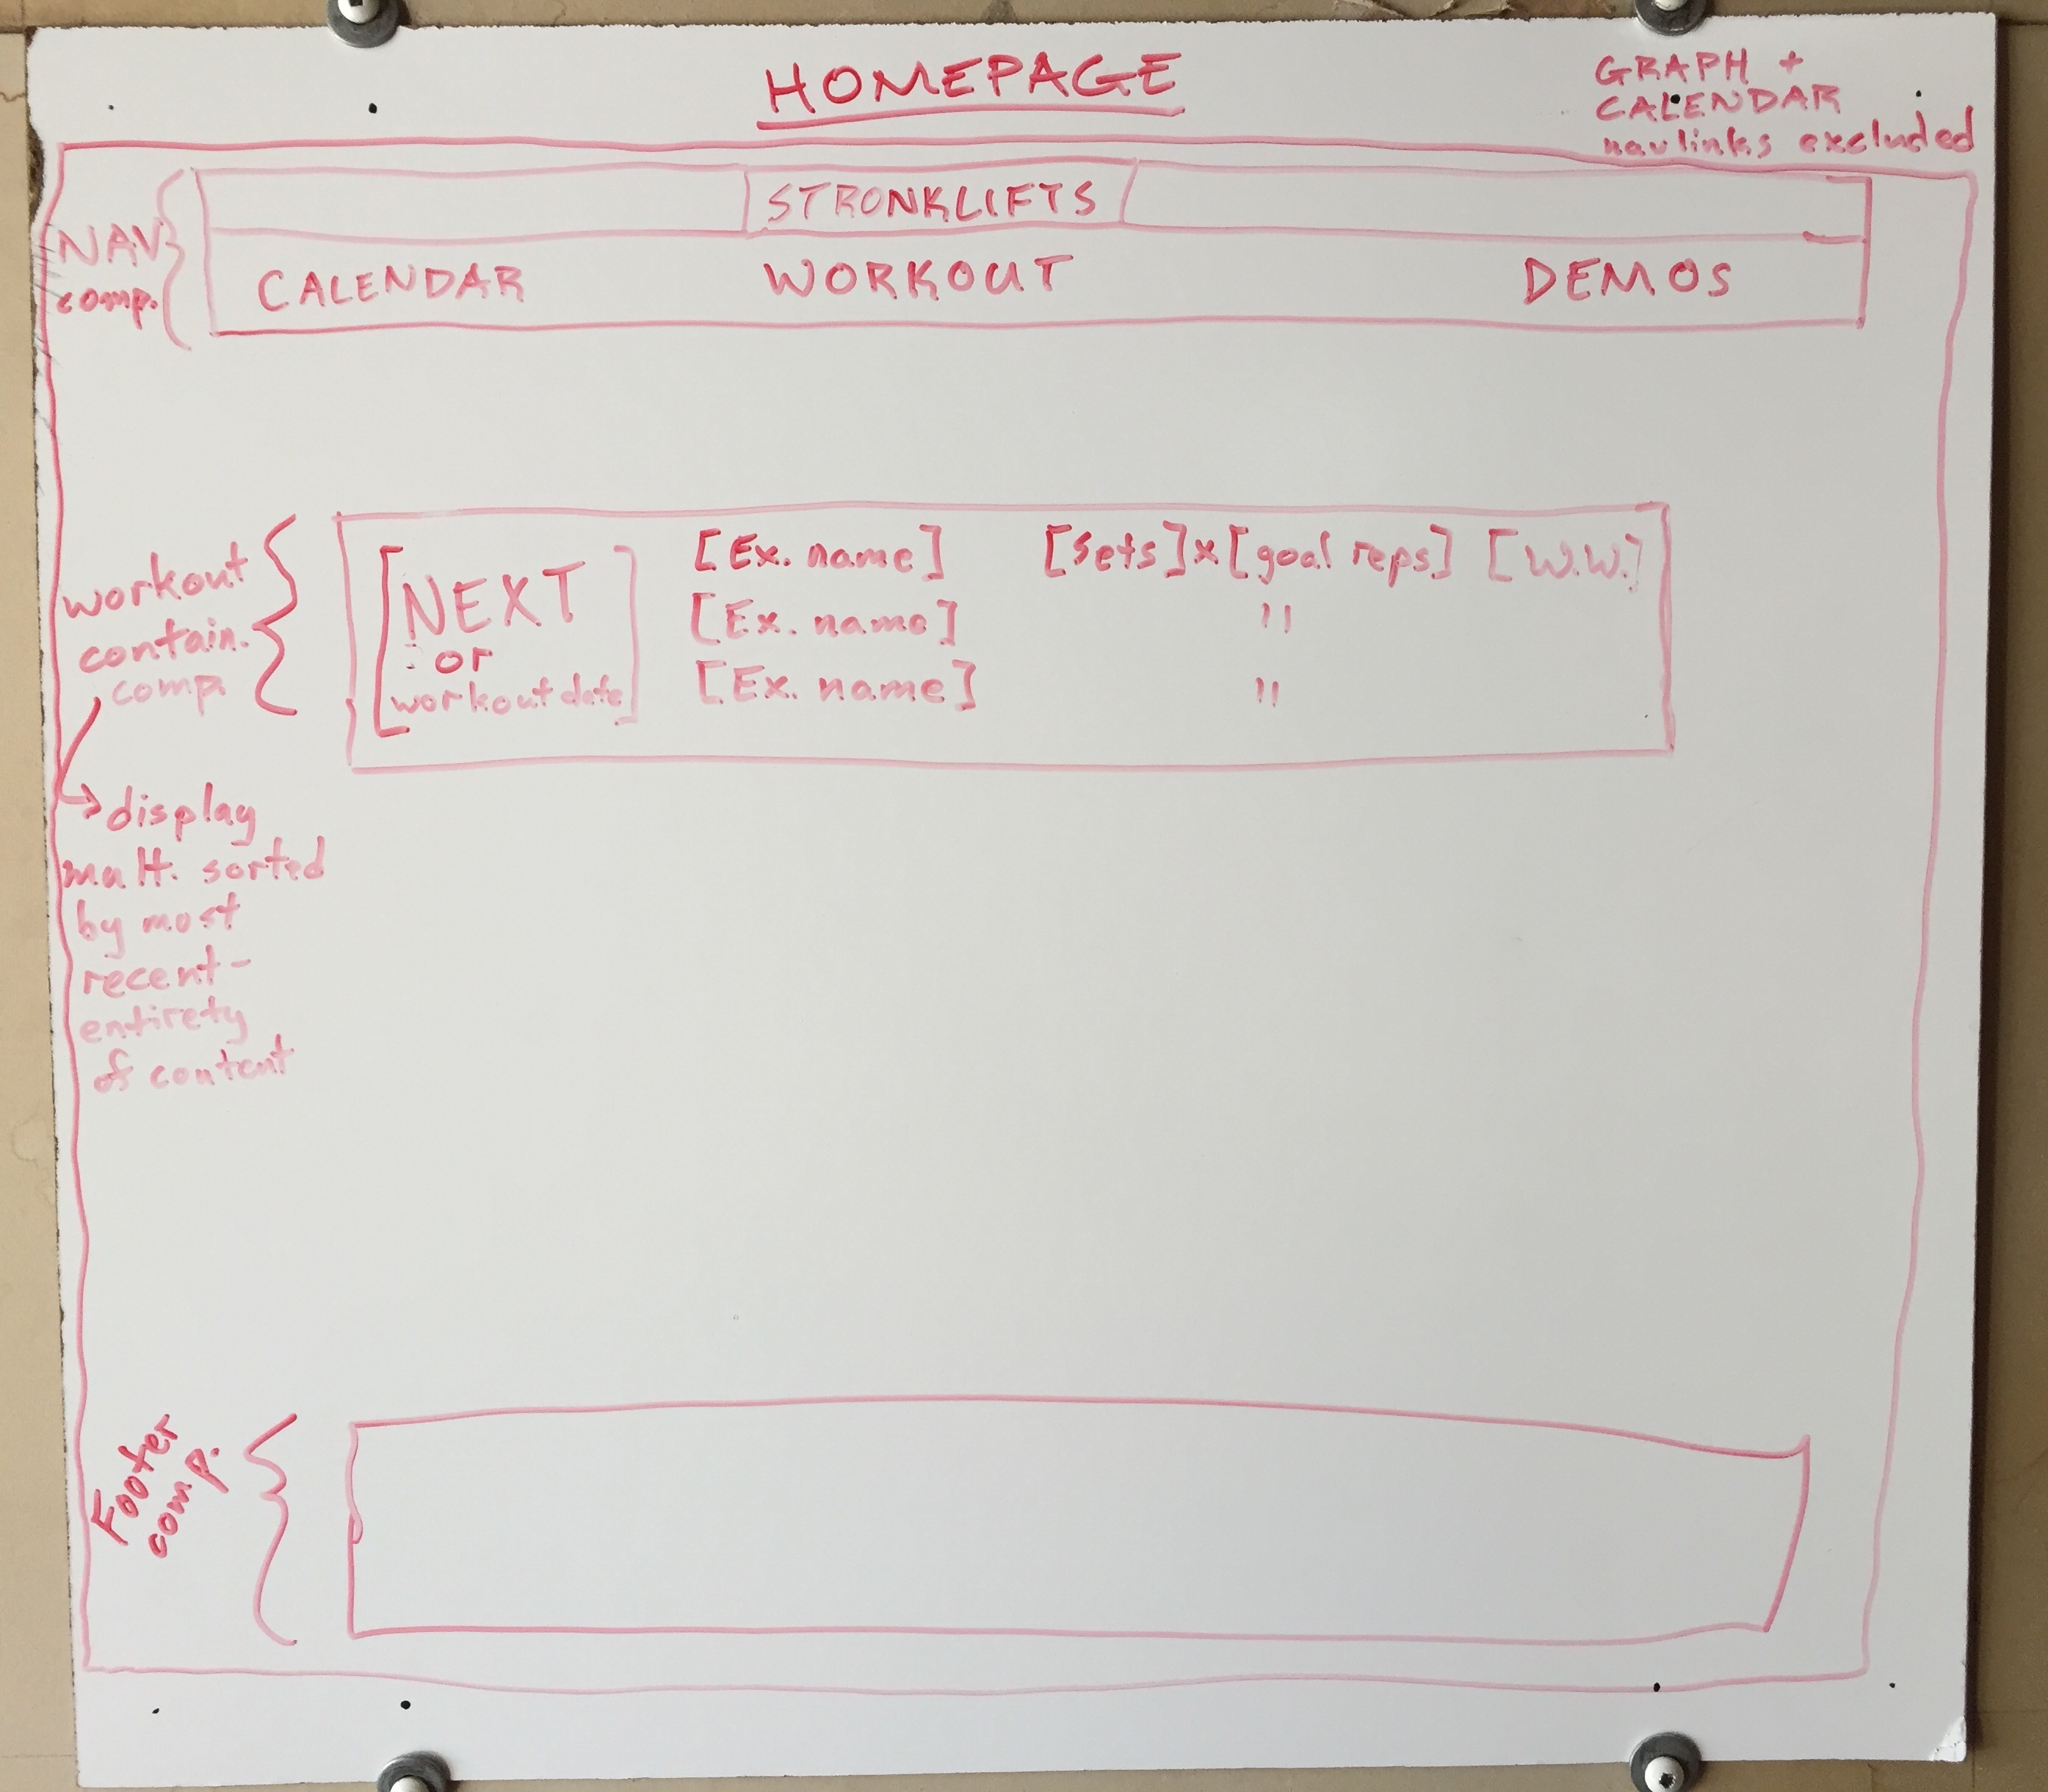 HOMEPAGE
GRAPH +
CALENDAR
navlinks excluded
STRONKLIFTS
NAV
comp.
CALENDAR WORKOUT DEMOS
workout
contain.
comp.
[NEXT
or
workout date]
[Ex. name] [Sets]x[goal reps] [W.W.]
[Ex. name] "
[Ex. name] "
display
mult. sorted
by most
recent-
entirety
of content
Footer
comp.